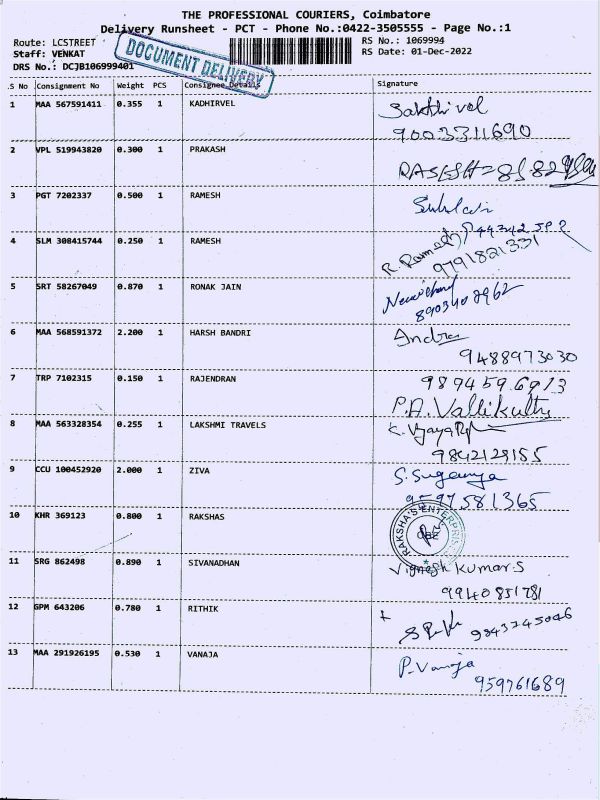 THE PROFESSIONAL COURIERS, Coimbatore
Delivery Runsheet - PCT - Phone No.:0422-3505555 - Page No.:1
Route: LCSTREET
RS No.: 1069994
Staff: VENKAT
RS Date: 01-Dec-2022
DRS No.: DCJB106999401
DOCUMENT DELIVERY
S No Consignment No Weight PCS Consignee Details Signature
1 MAA 567591411 0.355 1 KADHIRVEL Sakthivel
9003311690
2 VPL 519943820 0.300 1 PRAKASH
3 PGT 7202337 0.500 1 RAMESH
4 SLM 308415744 0.250 1 RAMESH R. Ramesh
9791821331
5 SRT 58267049 0.870 1 RONAK JAIN
8903402962
6 MAA 568591372 2.200 1 HARSH BANDRI
9488973030
7 TRP 7102315 0.150 1 RAJENDRAN
P.A. Vallikutty
8 MAA 563328354 0.255 1 LAKSHMI TRAVELS
9842129155
9 CCU 100452920 2.000 1 ZIVA S. Suganya
9597581365
10 KHR 369123 0.800 1 RAKSHAS RAKSHA'S ENTERPRISES
CBE
11 SRG 862498 0.890 1 SIVANADHAN Vignesh Kumar.S
9940851781
12 GPM 643206 0.780 1 RITHIK 9843745046
13 MAA 291926195 0.530 1 VANAJA P. Vanaja
959761689